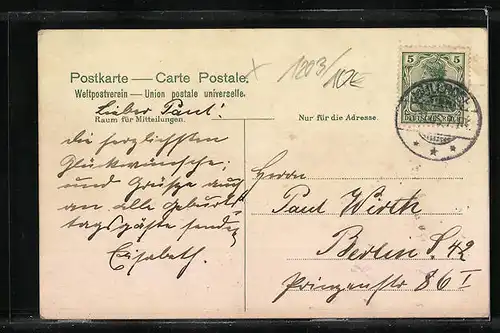 Postkarte — Carte Postale.
Weltpostverein — Union postale universelle.
Raum für Mitteilungen.
Nur für die Adresse.
x 1203/ 10€
5 5
DEUTSCHES REICH
Lieber Paul!
die herzlichsten
Glückwünsche,
und Grüße auch
an alle Geburts-
tagsgäste sendet
Elisabeth.
Herrn
Paul Wirth
Berlin S. 42
Prinzenstr 86 I